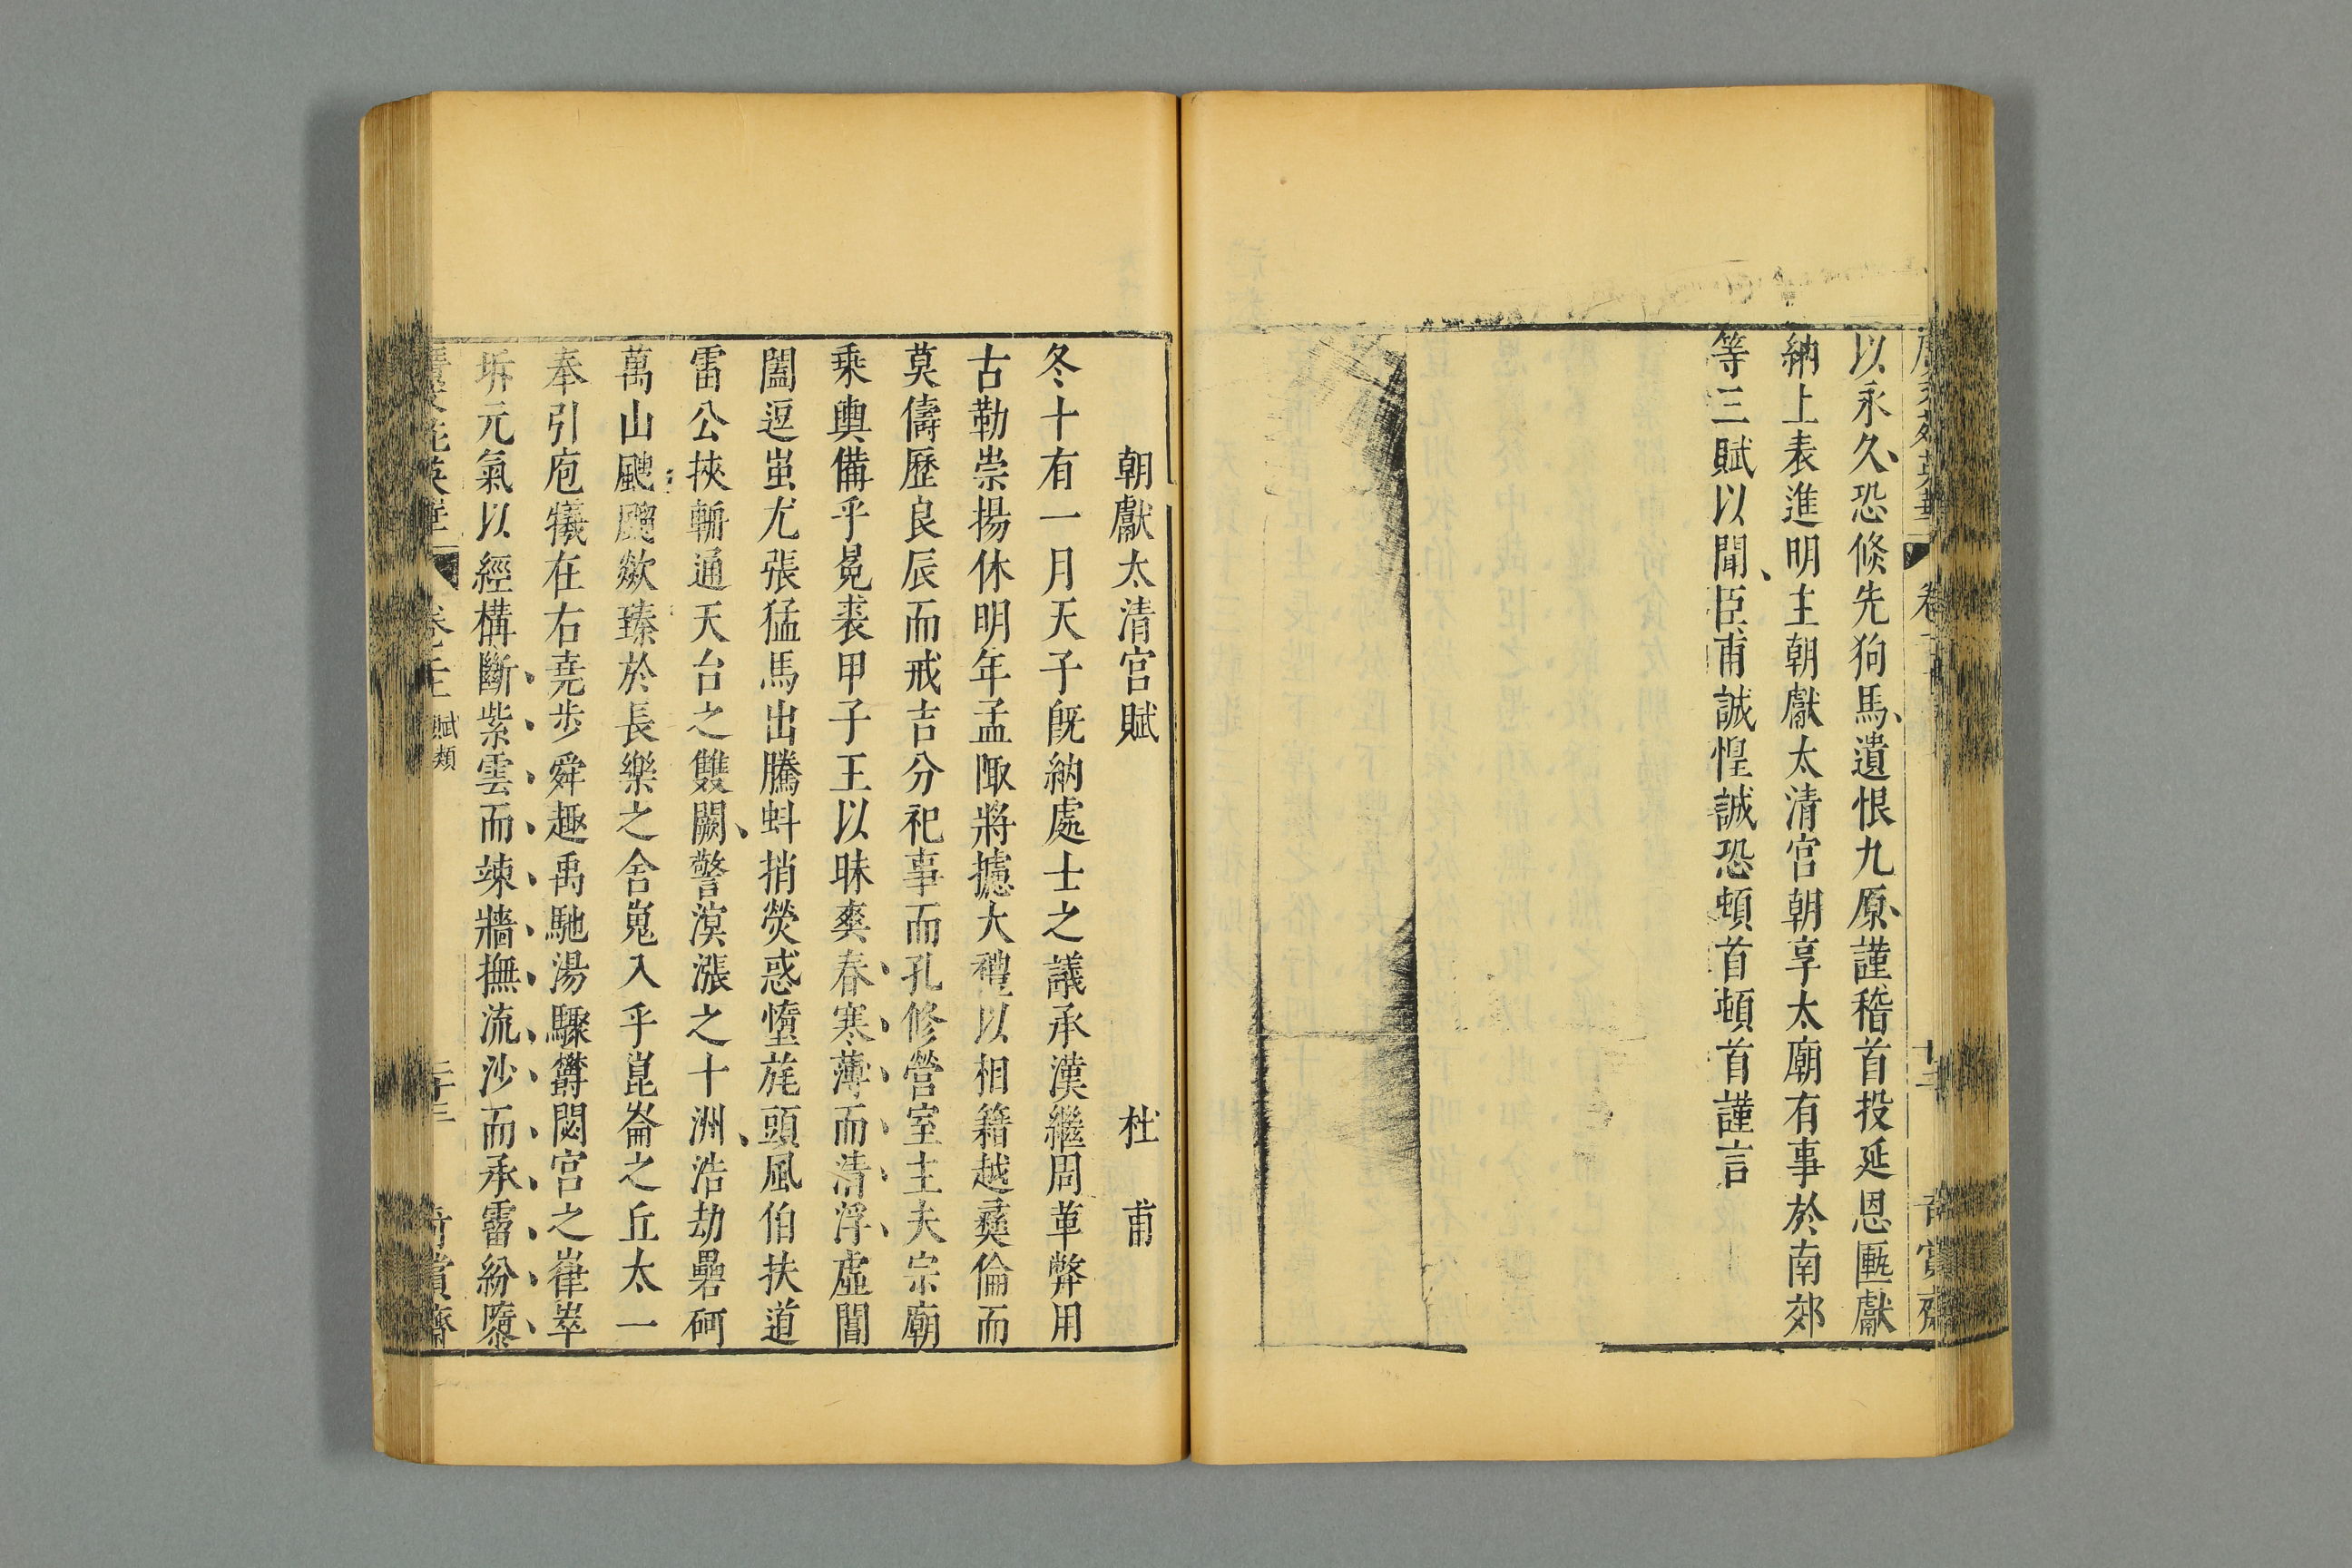 以永久恐倐先狗馬遺恨九原謹稽首投延恩匭獻
納上表進明主朝獻太清宮朝享太廟有事於南郊
等三賦以聞臣甫誠惶誠恐頓首頓首謹言
朝獻太清宮賦 杜甫
冬十有一月天子旣納處士之議承漢繼周革弊用
古勒崇揚休明年孟陬將攄大禮以相籍越彞倫而
莫儔歷良辰而戒吉分祀事而孔修營室主夫宗廟
乘輿備乎冕裘甲子王以昧爽春寒薄而清浮虛閶
闔逗蚩尤張猛馬出騰虬捎熒惑墮旄頭風伯扶道
雷公挾輈通天台之雙闕警溟漲之十洲浩劫礨砢
萬山颼飀歘臻於長樂之舍嵬入乎崑崙之丘太一
奉引庖犧在右堯步舜趨禹馳湯驟欝閟宮之嵂崒
坼元氣以經構斷紫雲而竦牆撫流沙而承霤紛隳
賦類